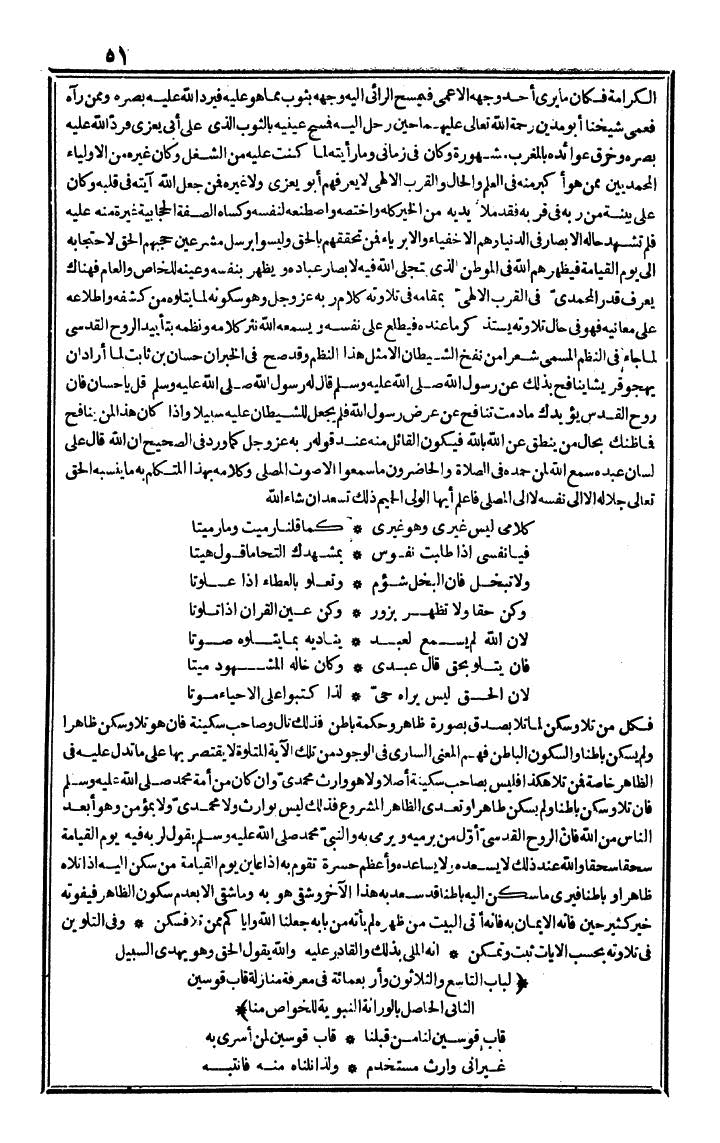 ٥١
الكرامة فكان ما يرى أحد وجهه الا عمى فيمسح الرائى اليه وجهه بثوب مما هو عليه فيرد الله عليه بصره وممن رآه
فعمى شيخنا أبو مدين رحمة الله تعالى عليهما حين رحل اليه فسح عينيه بالثوب الذى على أبى يعزى فرد الله عليه
بصره وخرق عوائده بالمغرب مشهورة وكان فى زمانى وما رأيته لما كنت عليه من الشغل وكان غيره من الاولياء
المحمديين ممن هو أكبر منه فى العلم والحال والقرب الالهى لا يعرفهم أبو يعزى ولا غيره فمن جعل الله آيته فى قلبه وكان
على بينة من ربه فى قربه فقد ملأ يديه من الخير كله واختصه واصطنعه لنفسه وكساه الصفة الحجابية غيرة منه عليه
فلم تشهد حاله الابصار فى الدنيا وهم الاخفياء والابرياء فمن تحققهم بالحق وليسوا برسل مشرعين حجبهم الحق لاحتجابه
الى يوم القيامة فيظهرهم الله فى الموطن الذى يتجلى الله فيه لابصار عباده ويظهر بنفسه وعينه للخاص والعام فهناك
يعرف قدر المحمدىّ فى القرب الالهىّ بمقامه فى تلاوته كلام ربه عز وجل وهو سكونه لما يتلوه من كشفه واطلاعه
على معانيه فهو فى حال تلاوته يستذكر ما عنده فيطلع على نفسه ويسمعه الله نثر كلامه ونظمه بتأييد الروح القدسى
لما جاء فى النظم المسمى شعرا من نفخ الشيطان الامثل هذا النظم وقد صح فى الخبر ان حسان بن ثابت لما أراد ان
يهجو قريشا ينافح بذلك عن رسول الله صلى الله عليه وسلم قال له رسول الله صلى الله عليه وسلم قل يا حسان فان
روح القدس يؤيدك ما دمت تنافح عن عرض رسول الله فلم يجعل للشيطان عليه سبيلا واذا كان هذا لمن ينافح
فما ظنك بحال من ينطق عن الله بالله فيكون القائل منه عند قوله ربه عز وجل كما ورد فى الصحيح ان الله قال على
لسان عبده سمع الله لمن حمده فى الصلاة والحاضرون ما سمعوا الا صوت المصلى وكلامه بهذا المتكلم به ما ينسبه الحق
تعالى جلاله الا الى نفسه لا الى المصلى فاعلم أيها الولى الحميم ذلك تسعد ان شاء الله
كلامى ليس غيرى وهو غيرى * كما قلنا رميت وما رميتا
فيا نفسى اذا طابت نفوس * بمشهدك التحاما قول هيتا
ولا تبخل فان البخل شؤم * وتعلو بالعطاء اذا علوتا
وكن حقا ولا تظهر بزور * وكن عين القران اذا تلوتا
لان الله لم يسمع لعبد * يناديه بما يتلوه صوتا
فان يتلو بحق قال عبدى * وكان خاله المشهود ميتا
لان الحق ليس يراه حىّ * لذا كتبوا على الاحياء موتا
فكل من تلا وسكن لما تلا بصدق بصورة ظاهر وحكمة باطن فذلك تال وصاحب سكينة فان هو تلا وسكن ظاهرا
ولم يسكن باطنا والسكون الباطن فهم المعنى السارى فى الوجود من تلك الآية المتلوة لا يقتصر بها على ما تدل عليه فى
الظاهر خاصة فمن تلا هكذا فليس بصاحب سكينة أصلا ولا هو وارث محمدىّ وان كان من أمة محمد صلى الله عليه وسلم
فان تلا وسكن باطنا ولم يسكن ظاهرا وتعدى الظاهر المشروع فذلك ليس بوارث ولا محمدىّ ولا بمؤمن وهو أبعد
الناس من الله فانّ الروح القدسىّ أوّل من يرميه ويرمى به والنبىّ محمد صلى الله عليه وسلم يقول لربه فيه يوم القيامة
سحقا سحقا والله عند ذلك لا يسعده ولا يساعده وأعظم حسرة تقوم به اذا عاين يوم القيامة من سكن اليه اذا تلاه
ظاهرا وباطنا فيرى ما سكن اليه باطنا قد سعد به هذا الآخر وشقى هو به وما شقى الا بعدم سكون الظاهر فيفوته
خير كثير حين فاته الايمان به فانه أتى البيت من ظهره لم يأته من بابه جعلنا الله واياكم ممن تلا فسكن * وفى التلوين
فى تلاوته بحسب الايات ثبت وتمكن * انه الملى بذلك والقادر عليه والله يقول الحق وهو يهدى السبيل
﴿لباب التاسع والثلاثون وأربعمائة فى معرفة منازلة قاب قوسين
الثانى الحاصل بالوراثة النبوية للخواص منا﴾
قاب قوسين لنا من قبلنا * قاب قوسين لمن أسرى به
غير انى وارث مستخدم * ولذا نلناه منه فانتبه